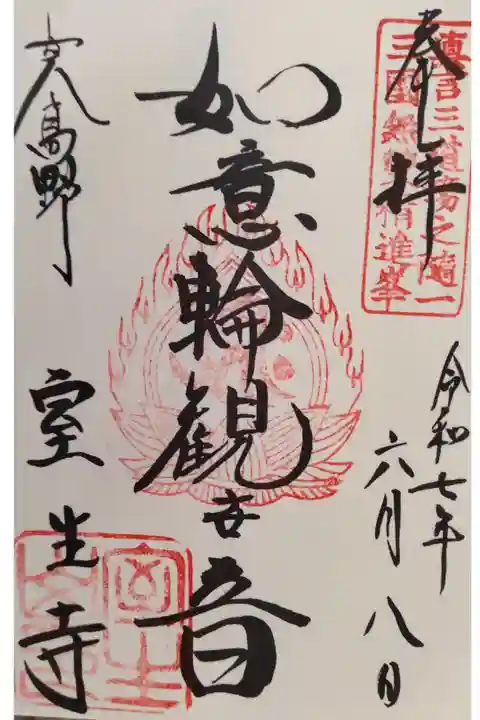 奉拝
真言三道場之随一
三国無雙精進峯
令和七年
六月八日
如意輪観世音
女人高野
室生寺